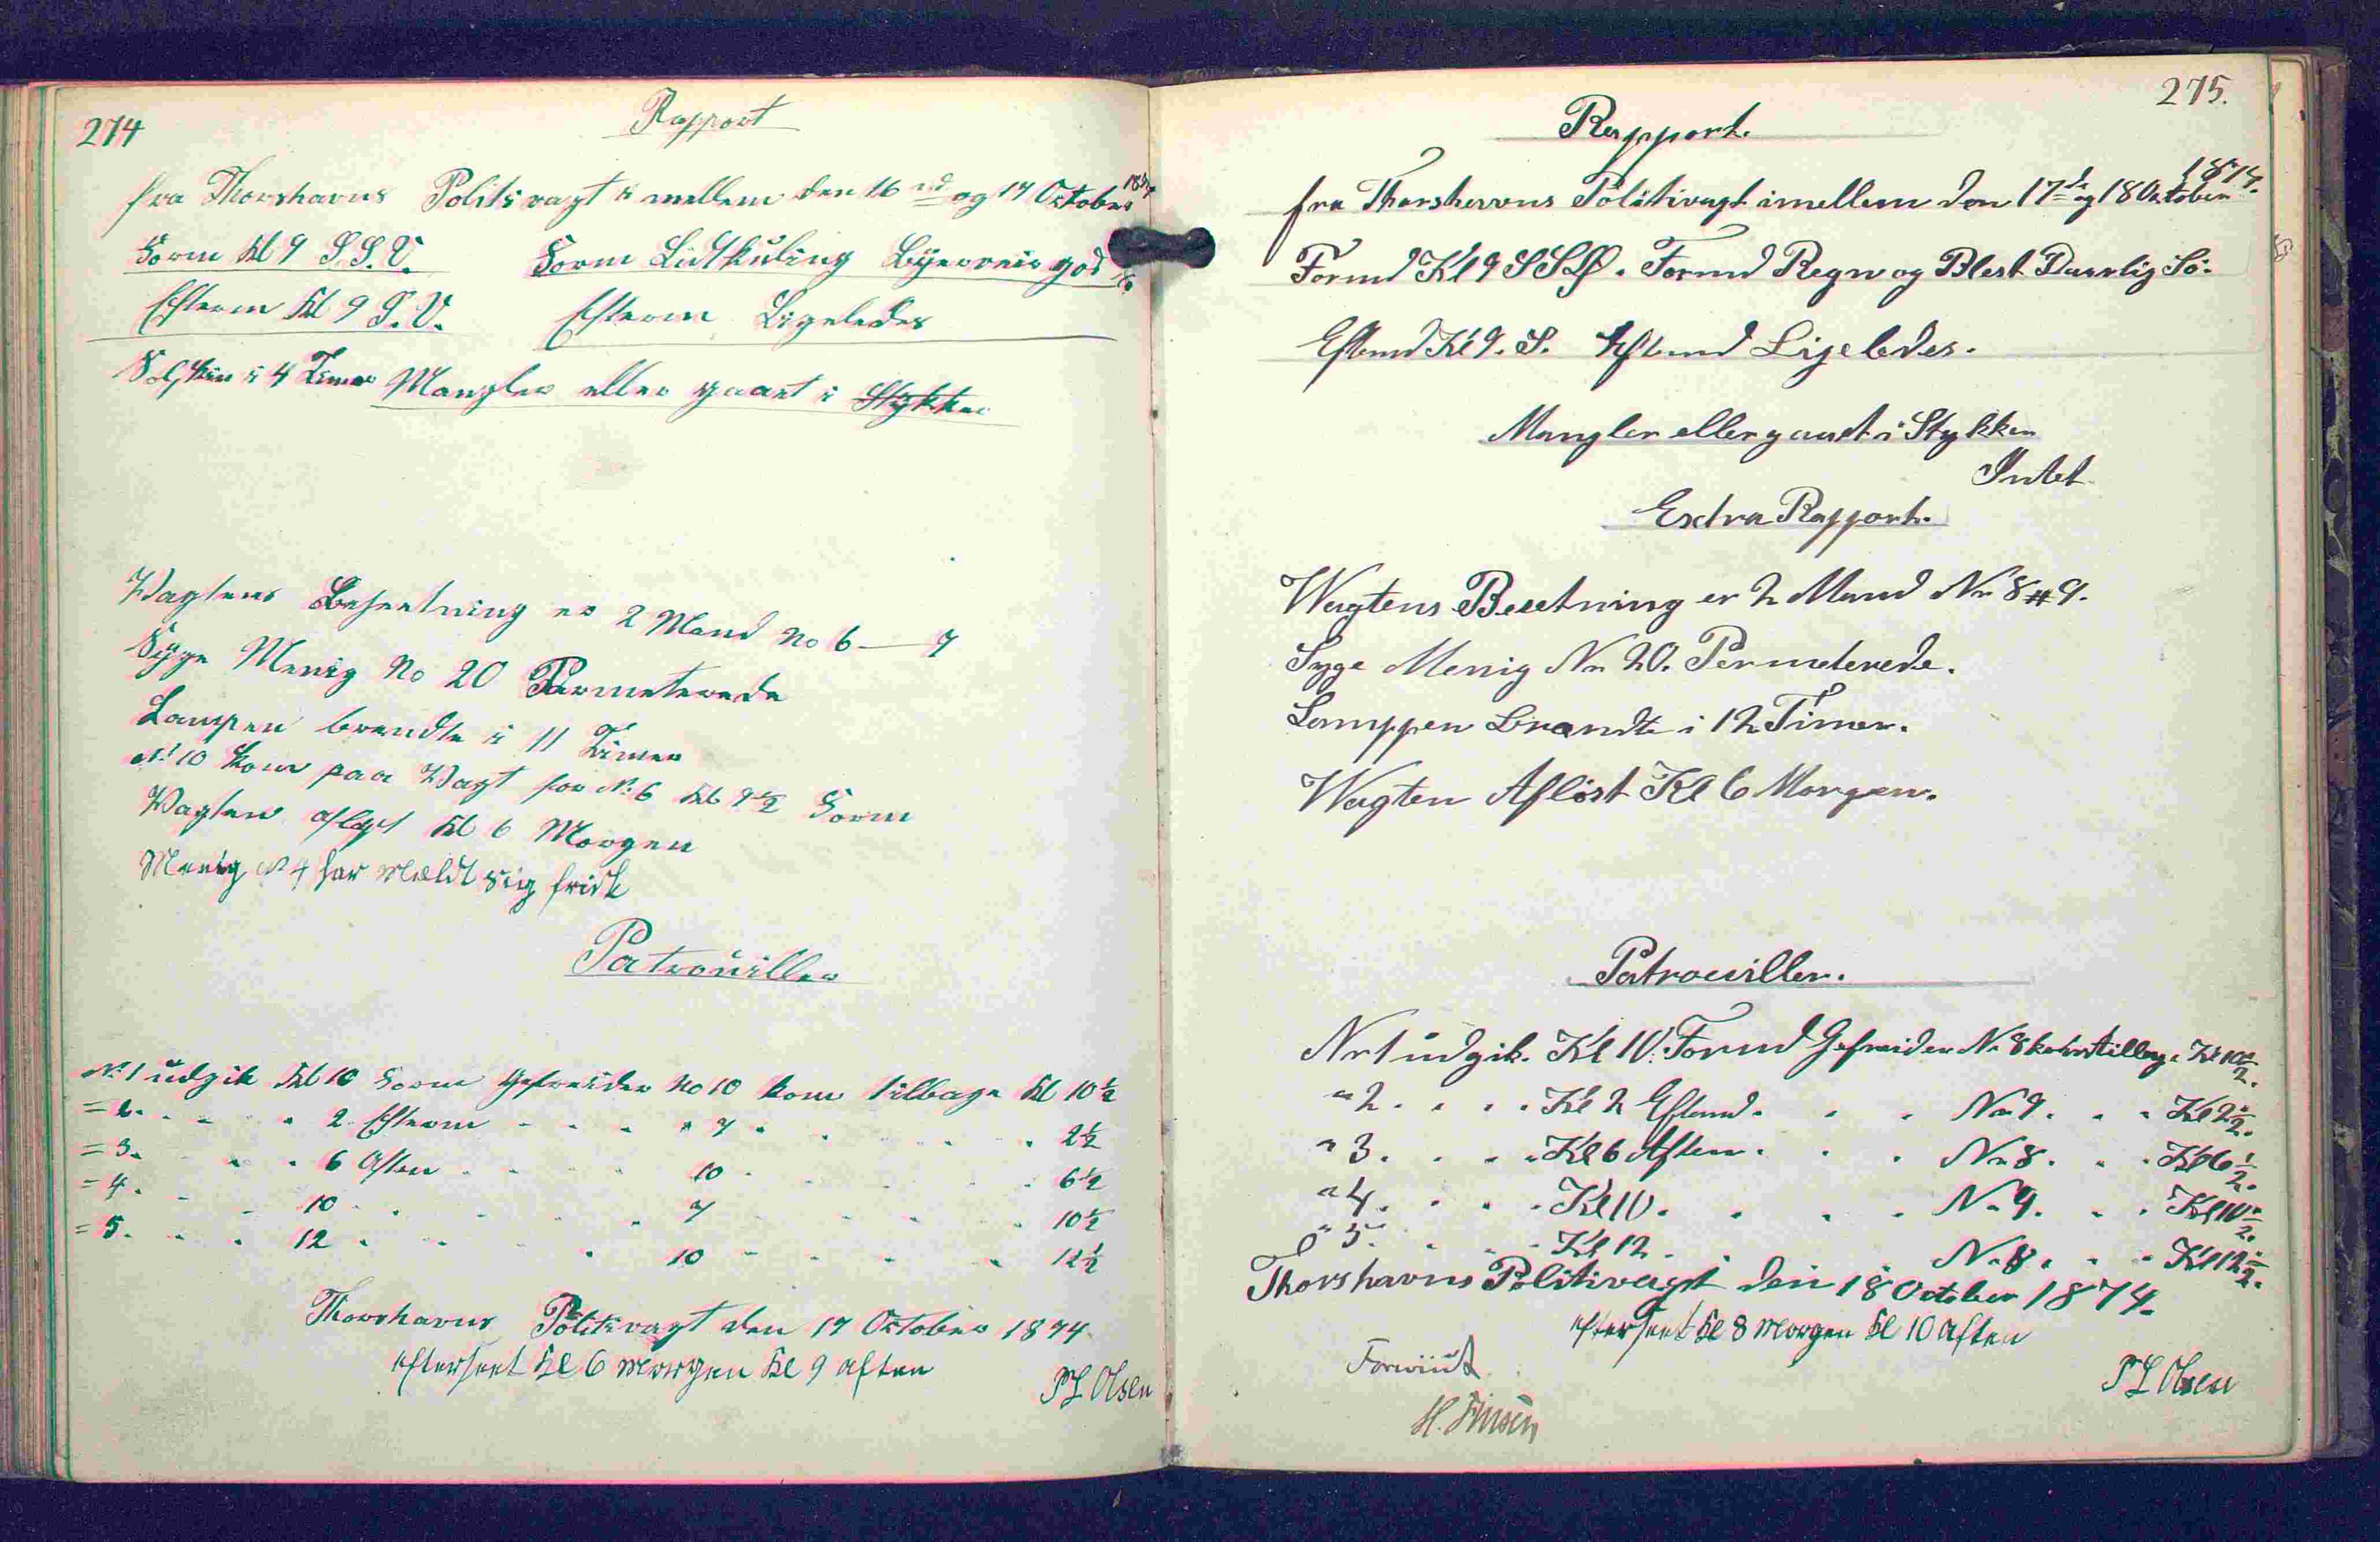 274
Rapport
fra Thorshavns Politivagt i mellem den 16 og 17 October 1874
Form Kl 9 S.S.V. Form Lidtkuling
Efterm Kl 9 S.V. Efterm Ligeledes
Solskin i 4 Timer Mangler eller gaaet i Stykker
Vagtens Besætning er 2 Mand No 6 — 7
Syge Menig No 20 Permeterede
Lampen brændte i 11 Timer
N: 10 kom paa Vagt for N: 6 Kl 9½ Form
Vagten afløst Kl 6 Morgen
Menig N 4 har Mældt sig frisk
Patrouiller
N: 1 üdgik Kl 10 Form Gefreider No 10 kom tilbage Kl 10½
= 2. 2 Efterm " 7 " 2½
= 3. 6 Aften 10 6½
= 4. 10 7 10½
= 5. 12 10 12½
Thorshavns Politivagt den 17 October 1874
efterseet Kl 6 Morgen Kl 9 aften
P L Olsen
275.
Rapport.
fra Thorshavns Politivagt imellem den 17de og 18 October 1874.
Formd Kl 9 SSO. Formd Regn og Blest Daarlig Sö.
Eftmd Kl 9. S. Eftmd Ligeledes.
Mangler eller gaaet i Stykker
Intet
Extra Rapport.
Wagtens Besetning er 2 Mand Nr 8 # 9.
Syge Menig Nr 20. Permeterede.
Lamppen Brændte i 12 Timer.
Wagten Aflöst Kl 6 Morgen.
Patrouiller.
Nr 1 üdgik. Kl 10. Formd Gefreider Nr 8 kom tilbage Kl 10½.
" 2. Kl 2 Eftmd. Nr 9. Kl 2½.
" 3. Kl 6 Aften. Nr 8. Kl 6½.
" 4. Kl 10. Nr 9. Kl 10½.
" 5. Kl 12. Nr 8. Kl 12½.
Thorshavns Politivagt den 18 October 1874.
efterseet Kl 8 Morgen Kl 10 Aften
P L Olsen
Foreviist
H. Finsen